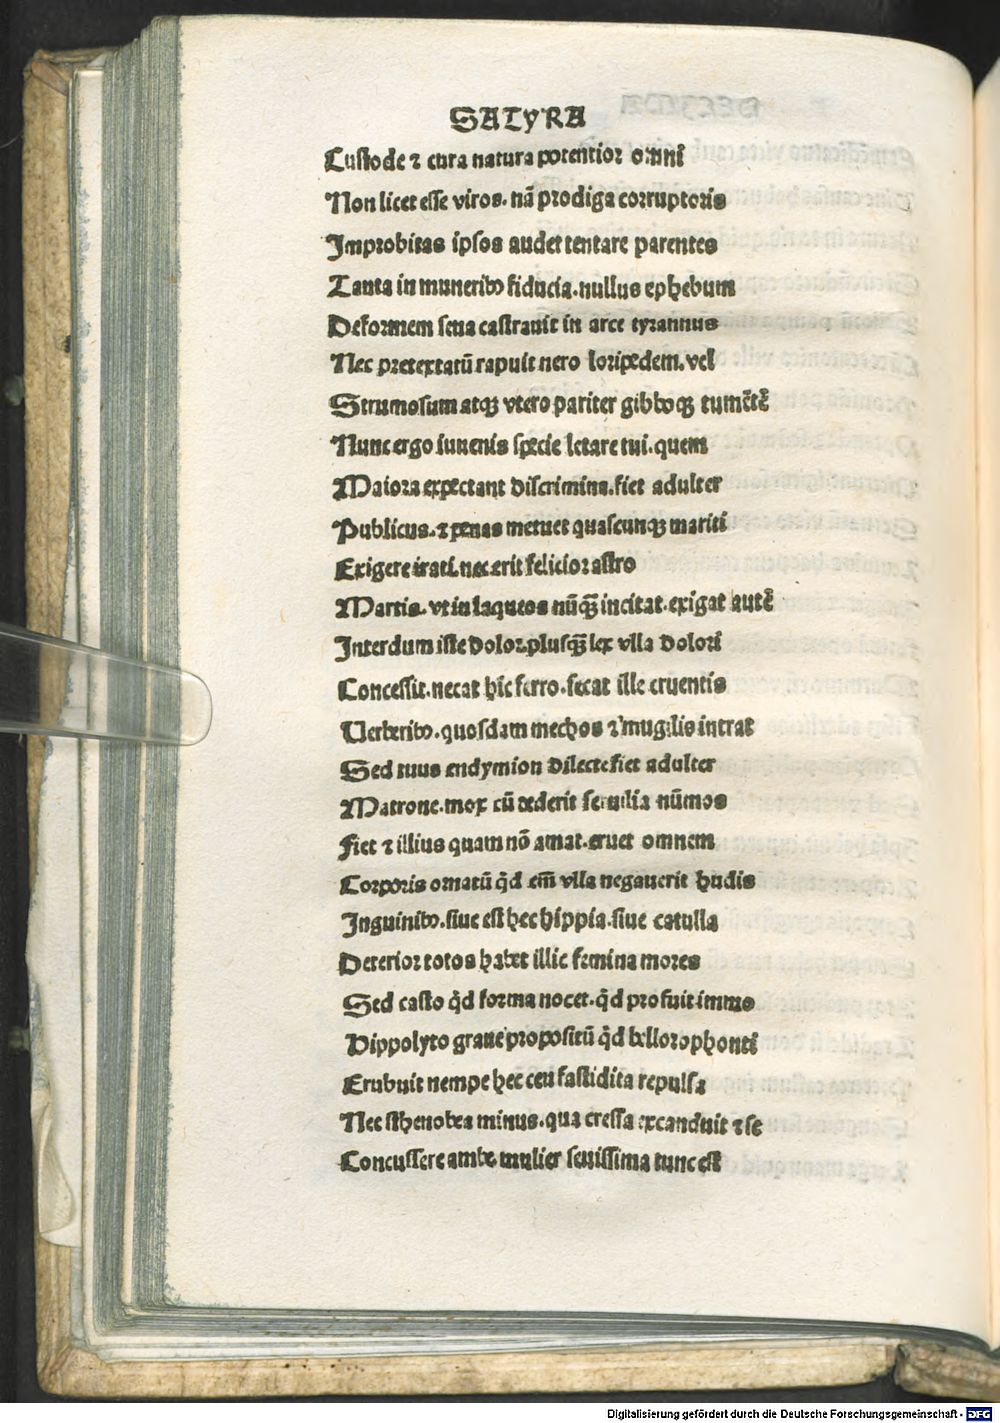 SATYRA
Custode ⁊ cura natura potentior omni
Non licet esse viros. nã prodiga corruptoris
Improbitas ipsos audet tentare parentes
Tanta in muneribꝰ fiducia. nullus ephebum
Deformem seua castrauit in arce tyrannus
Nec pretextatũ rapuit nero loripedem. vel
Strumosum atqꝫ vtero pariter gibboqꝫ tumẽtẽ
Nunc ergo iuuenis specie letare tui. quem
Maiora expectant discrimina. fiet adulter
Publicus. ⁊ penas metuet quascunqꝫ mariti
Exigere irati. nec erit felicior astro
Martis. vt in laqueos nũqꝫ̃ incitat. exigat autẽ
Interdum iste dolor. plusqꝫ̃ lex vlla dolori
Concessit. necat hĩc ferro. secat ille cruentis
Verberibꝰ. quosdam mechos ⁊ mugilis intrat
Sed tuus endymion dilecte fiet adulter
Matrone. mox cũ dederit seruilia nũmos
Fiet ⁊ illius quam nõ amat. eruet omnem
Corporis ornatũ q̃d em̃ vlla negauerit hudis
Inguinibꝰ. siue est hec hippia. siue catulla
Deterior totos habet illic femina mores
Sed casto q̃d forma nocet. q̃d profuit immo
Hippolyto graue propositũ q̃d bellorophonti
Erubuit nempe hec ceu fastidita repulsa
Nec sthenobea minus. qua cressa excanduit ⁊ se
Concussere ambe. mulier seuissima tunc est
Digitalisierung gefördert durch die Deutsche Forschungsgemeinschaft - DFG